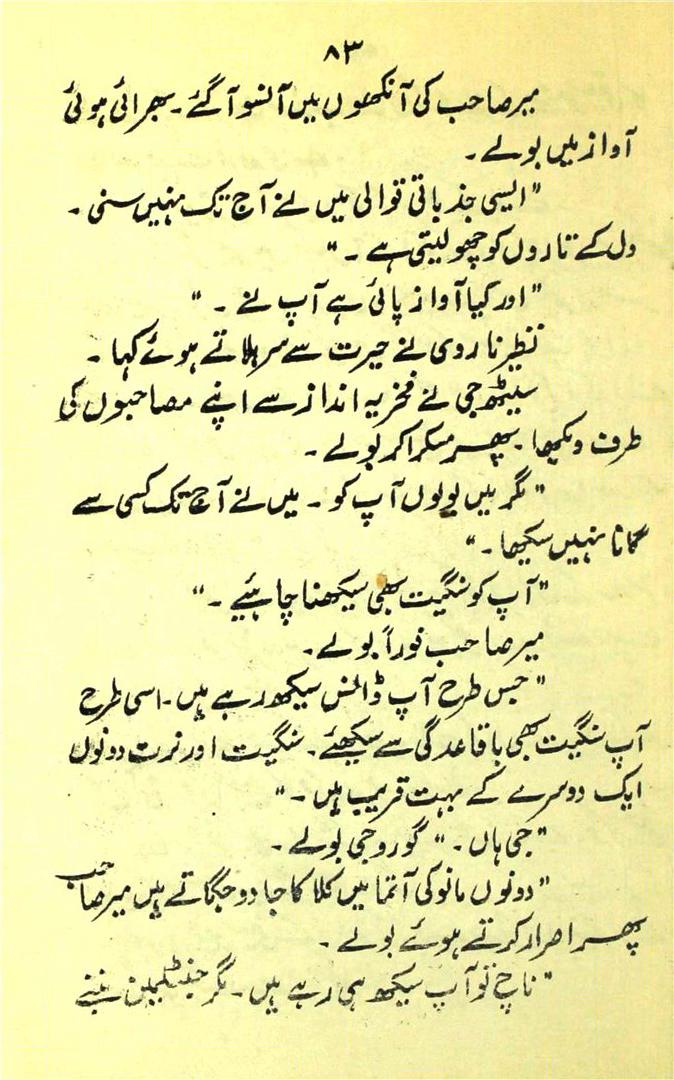 ۸۳
میر صاحب کی آنکھوں میں آنسو آ گئے۔ بھرائی ہوئی
آواز میں بولے۔
"ایسی جذباتی قوالی میں نے آج تک نہیں سنی۔
دل کے تاروں کو چھو لیتی ہے۔"
"اور کیا آواز پائی ہے آپ نے۔"
نظیر ناروی نے حیرت سے سر ہلاتے ہوئے کہا۔
سیٹھ جی نے فخریہ انداز سے اپنے مصاحبوں کی
طرف دیکھا۔ پھر مسکرا کر بولے۔
"مگر میں بولوں آپ کو۔ میں نے آج تک کسی سے
گانا نہیں سیکھا۔"
"آپ کو سنگیت بھی سیکھنا چاہئیے۔"
میر صاحب فوراً بولے۔
"جس طرح آپ ڈانس سیکھ رہے ہیں۔ اسی طرح
آپ سنگیت بھی باقاعدگی سے سیکھئے۔ سنگیت اور نرت دونوں
ایک دوسرے کے بہت قریب ہیں۔"
"جی ہاں۔" گورو جی بولے۔
"دونوں مانو کی آتما میں کلا کا جادو جگاتے ہیں میر صاحب
پھر اصرار کرتے ہوئے بولے۔
"ناچ تو آپ سیکھ ہی رہے ہیں۔ مگر جنٹلمین بننے